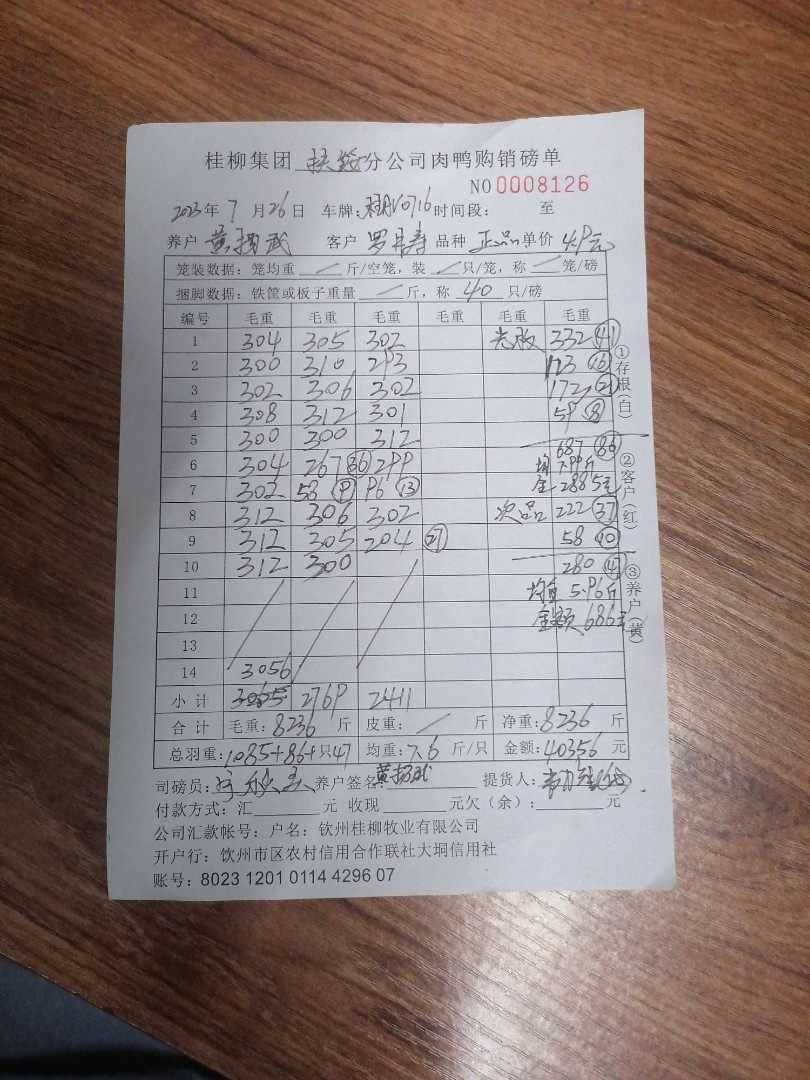 桂柳集团 扶绥分公司肉鸭购销磅单
NO 0008126
2023年 7 月 26 日 车牌: V0716 时间段: 至
养户 黄扬武 客户 罗 寿 品种 正品 单价 4.9元
笼装数据: 笼均重 / 斤/空笼, 装 / 只/笼, 称 / 笼/磅
捆脚数据: 铁筐或板子重量 / 斤, 称 40 只/磅
编号 毛重 毛重 毛重 毛重 毛重 毛重
1 304 305 302 光敗 332 (41)
2 300 310 293 123 (16)
3 302 306 302 172 (21)
4 308 312 301 59 (8)
5 300 300 312 687 (86)
6 304 267 (36) 299 均 7.99斤
7 302 58 (9) 96 (13) 金 2885元
8 312 306 302 次品 222 (37)
9 312 305 204 (27) 58 (10)
10 312 300 280 (47)
11 / / / 均重 5.96斤
12 金额 686元
13
14 3056
小计 3065 2769 2411
合计 毛重: 8236 斤 皮重: / 斤 净重: 8236 斤
总羽重: 1085+86+只47 均重: 7.6 斤/只 金额: 40356 元
司磅员: 养户签名: 黄扬武 提货人:
付款方式: 汇 元 收现 元欠(余): 元
公司汇款帐号: 户名: 钦州桂柳牧业有限公司
开户行: 饮州市区农村信用合作联社大垌信用社
账号: 8023 1201 0114 4296 07
①存根(白)
②客户(红)
③养户(黄)